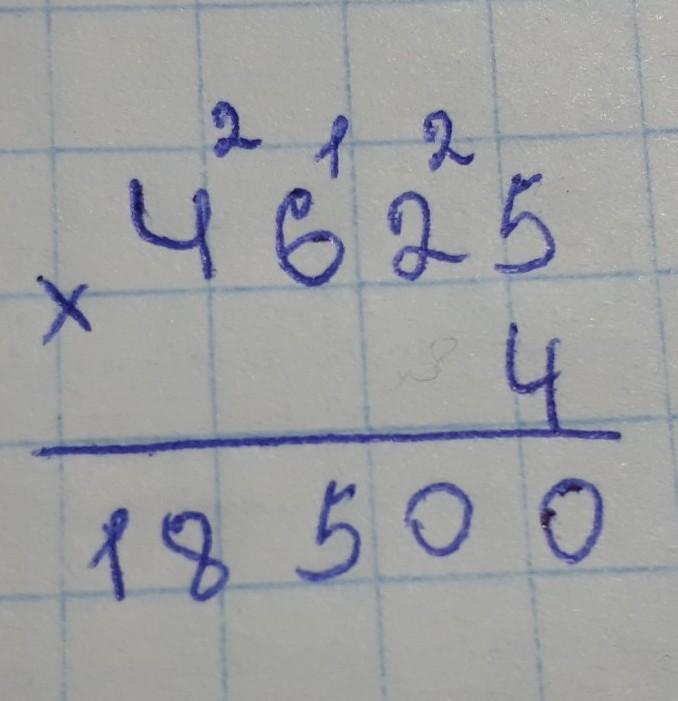 2 1 2
4625
×
4
18500